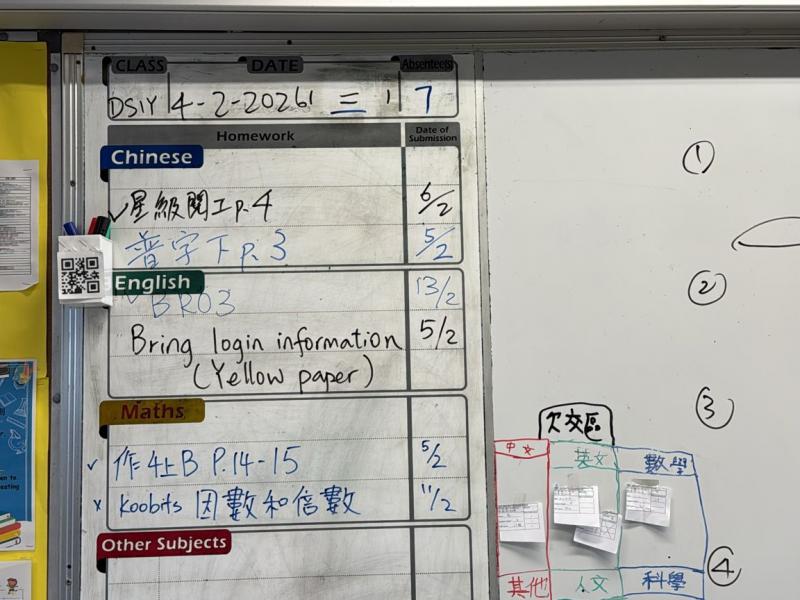 CLASS DATE Absentees
DS1Y 4-2-2026 三 7
Homework Date of Submission
Chinese
✓星級閱工p.4 6/2
普字下p.3 5/2
English
BR03 13/2
Bring login information 5/2
(Yellow paper)
Maths
✓ 作4上B P.14-15 5/2
x Koobits 因數和倍數 11/2
Other Subjects
①
②
③
④
欠交區
中文 英文 數學
其他 人文 科學